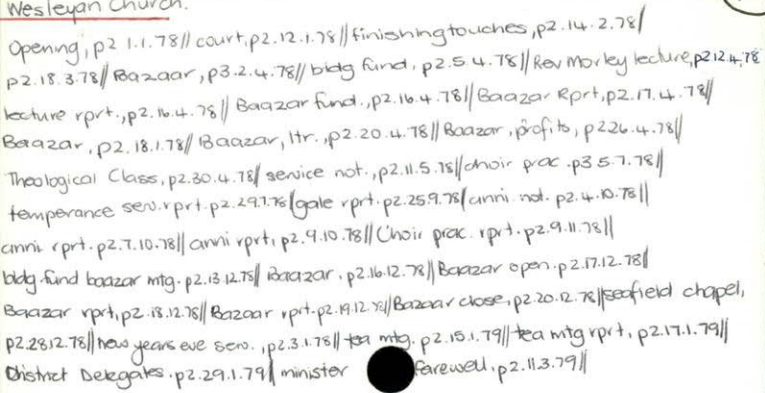 Wesleyan Church.
Opening, p2 1.1.78// court, p2.12.1.78// finishing touches, p2.14.2.78/
p2.18.3.78// Bazaar, p3.2.4.78// bldg fund, p2.5.4.78// Rev Morley lecture, p2 12.4.78
lecture rprt., p2.16.4.78// Baazar fund., p2.16.4.78// Baazar Rprt, p2.17.4.78//
Baazar, p2.18.1.78// Baazar, ltr., p2.20.4.78// Baazar, profits, p2 26.4.78//
Theological Class, p2.30.4.78/ service not., p2.11.5.78// choir prac. p3 5.7.78//
temperance serv. rprt. p2.29.7.78/ gale rprt. p2.25.9.78/ anni. not. p2.4.10.78//
anni rprt. p2.7.10.78// anni rprt, p2.9.10.78// Choir prac. rprt. p2.9.11.78//
bldg. fund baazar mtg. p2.13.12.78// Baazar. p2.16.12.78// Baazar open. p2.17.12.78/
Baazar rprt, p2.18.12.78// Bazaar rprt. p2.19.12.78// Bazaar close, p2.20.12.78// seafield chapel,
p2.28.12.78// new years eve serv., p2.3.1.78// tea mtg. p2.15.1.79// tea mtg rprt, p2.17.1.79//
District Delegates. p2.29.1.79/ minister farewell, p2.11.3.79//